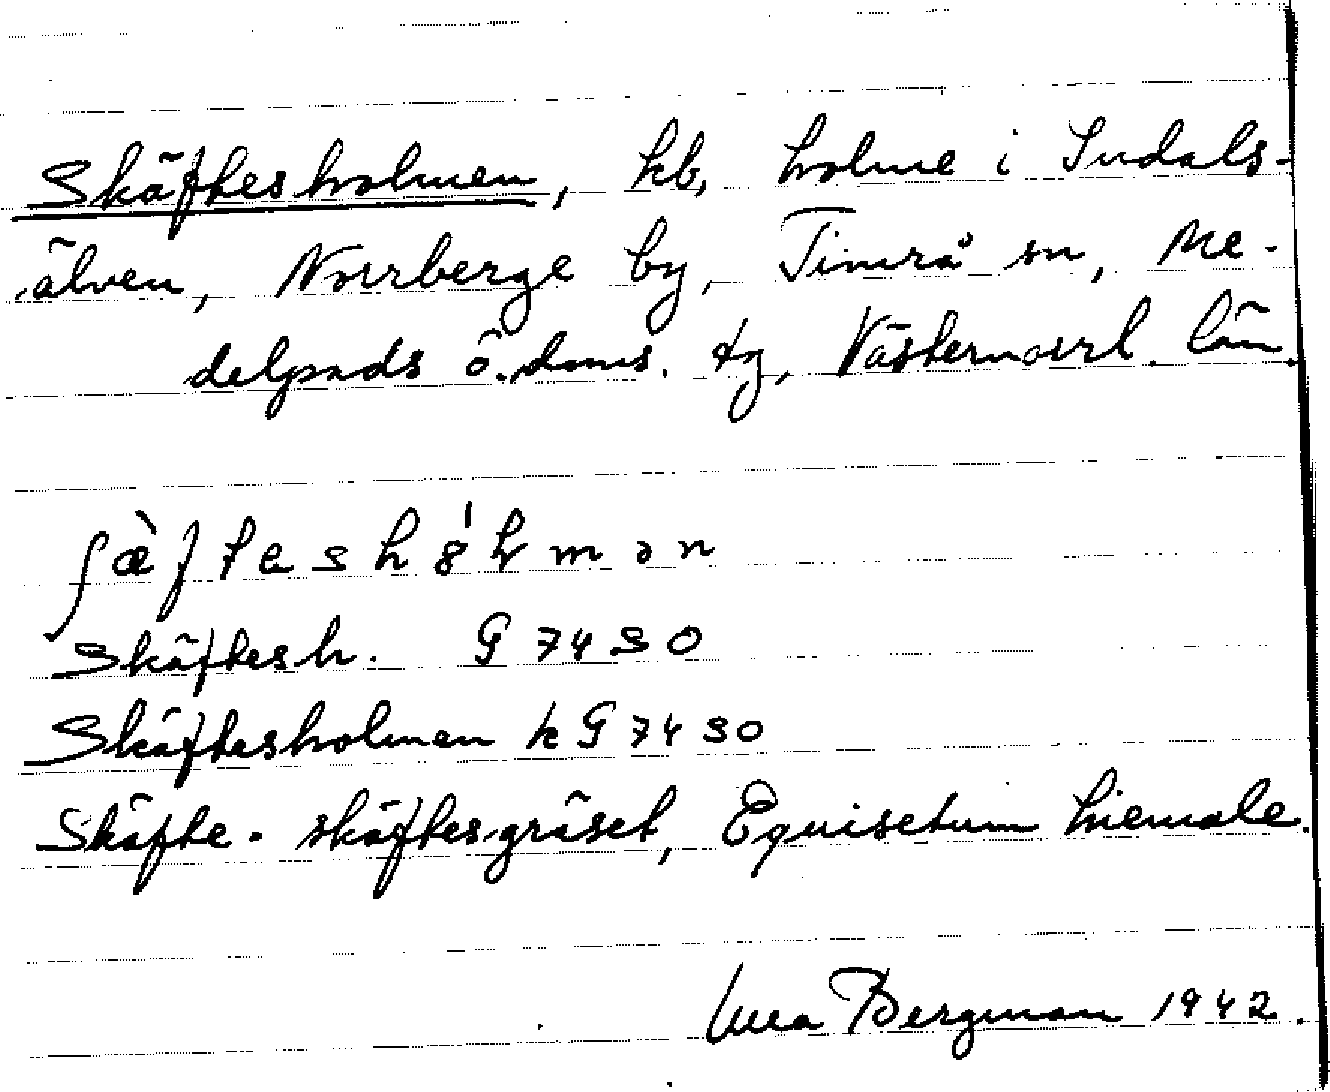 Skäftesholmen, kb, holme i Indals-
älven, Norrberge by, Timrå sn, Me-
delpads ö. doms. tg, Västernorrl. län.
ʃæ̀ftesh8̍ɫmən
Skäftesh. G 7430
Skäftesholmen k G 7430
Skäfte = skäftesgräset, Equisetum hiemale.
Bergman 1942.